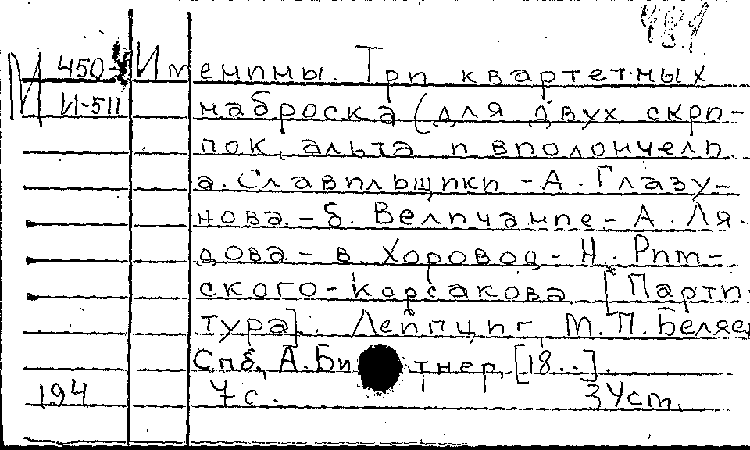 484
И 450-4 Именины. Три квартетных
И-511 наброска (для двух скри-
пок, альта и виолончели.
а. Славильщики - А. Глазу-
нова. - б. Величание - А. Ля-
дова - в. Хоровод - Н. Рим-
ского-Корсакова [Парти-
тура]. Лейпциг, М.П. Беляев
Спб, А. Би тнер, [18..].
194 7 с. 3 Уст.